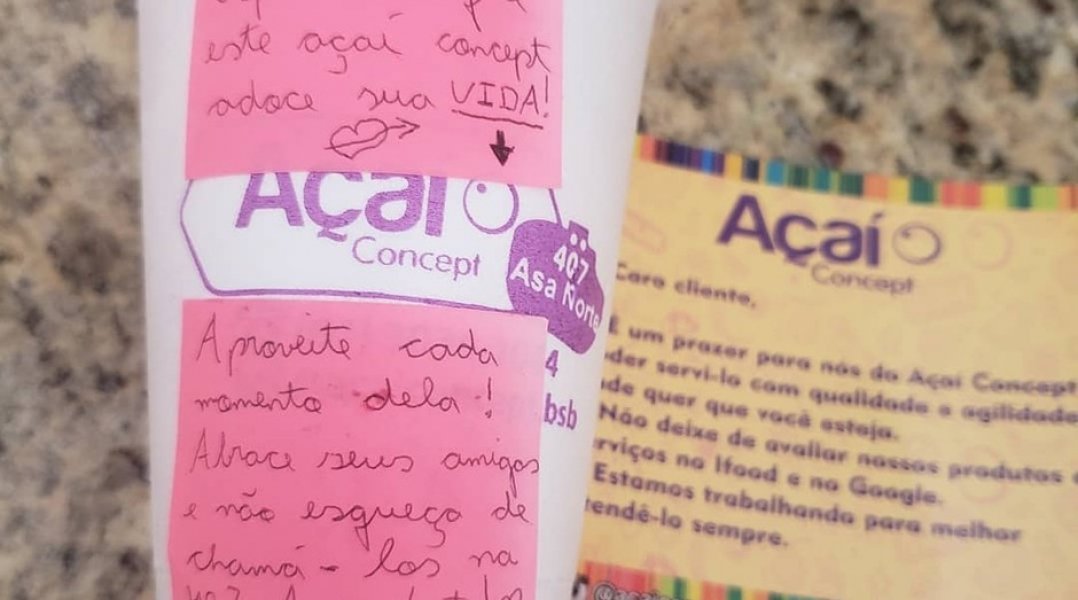 este açaí concept
adoce sua VIDA!
Açaí
Concept
407
Asa Norte
4
bsb
Aproveite cada
momento dela!
Abrace seus amigos
e não esqueça de
chamá-los na
Açaí
Concept
Caro cliente,
É um prazer para nós do Açaí Concept
oder servi-lo com qualidade e agilidade
nde quer que você esteja.
Não deixe de avaliar nossos produtos e
rviços no Ifood e no Google.
Estamos trabalhando para melhor
tendê-lo sempre.